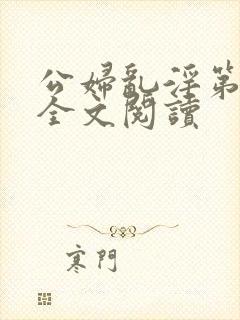 公婦亂淫第
全文閱讀
寒門